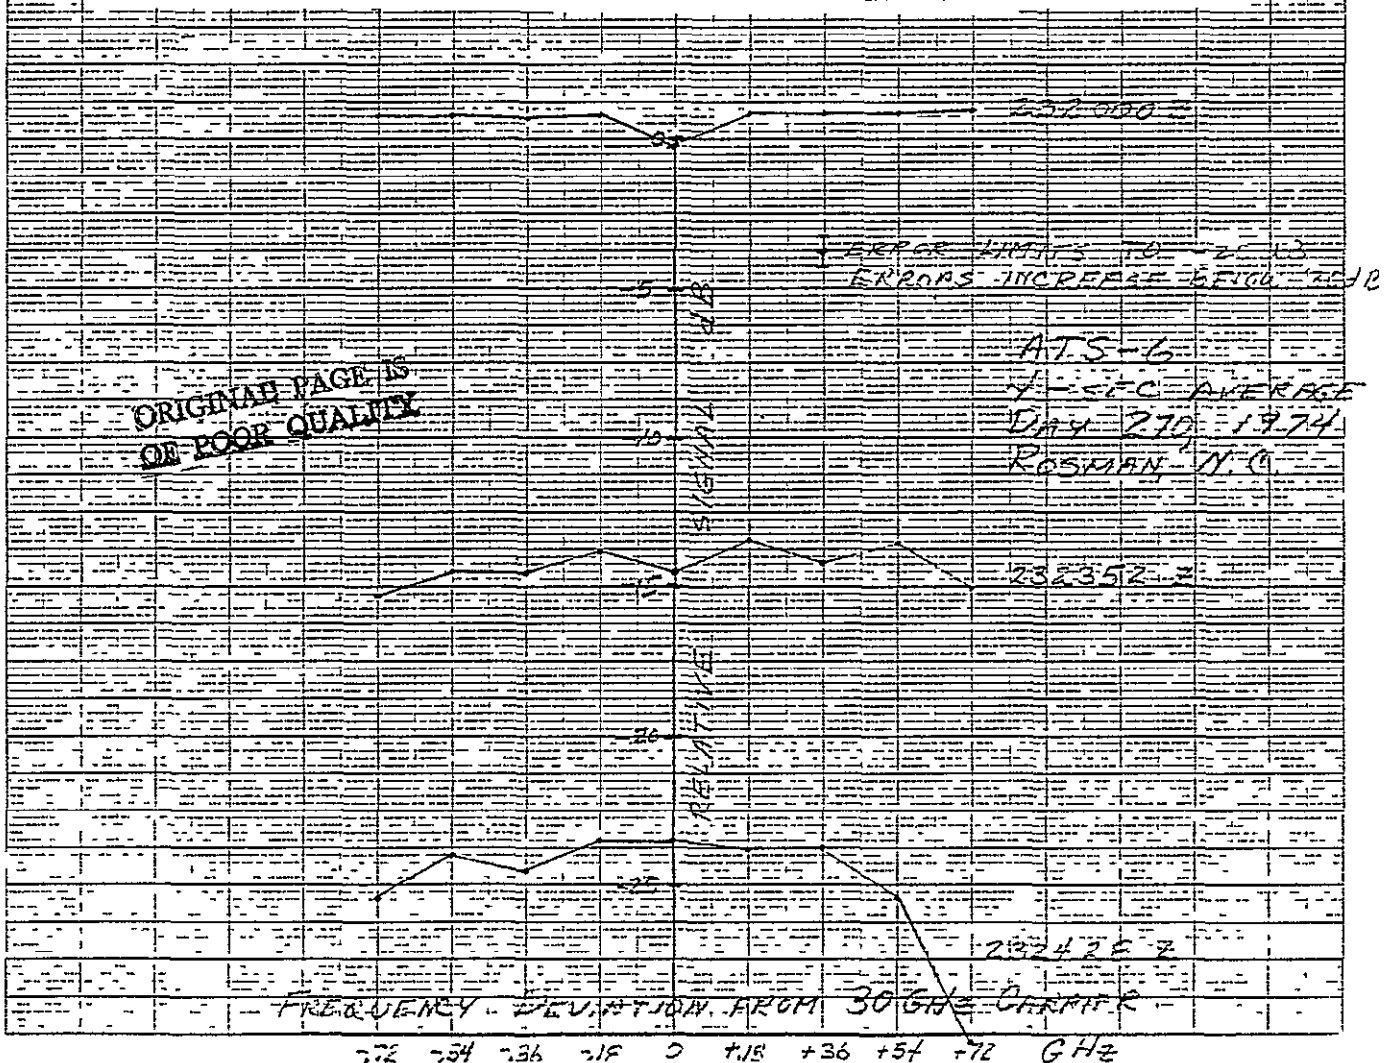 232000 Z
0
ERROR LIMITS TO
ERRORS INCREASE BELOW
-5
ATS-6
SEC AVERAGE
DAY 270, 1974
ROSMAN, N.C.
ORIGINAL PAGE IS
OF POOR QUALITY
-10
RELATIVE SIGNAL
-15
232352 Z
-20
-25
Z
FREQUENCY DEVIATION FROM 30 GHz CARRIER
-.72 -.54 -.36 -.18 0 +.18 +.36 +.54 +.72 GHz